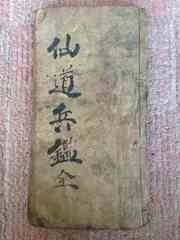 仙道兵鑑全